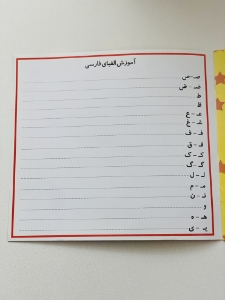 آموزش الفبای فارسی
صـ - ص
ضـ - ض
ط
ظ
عـ - ع
غـ - غ
فـ - ف
قـ - ق
کـ - ک
گـ - گ
لـ - ل
مـ - م
نـ - ن
و
هـ - ه
یـ - ی